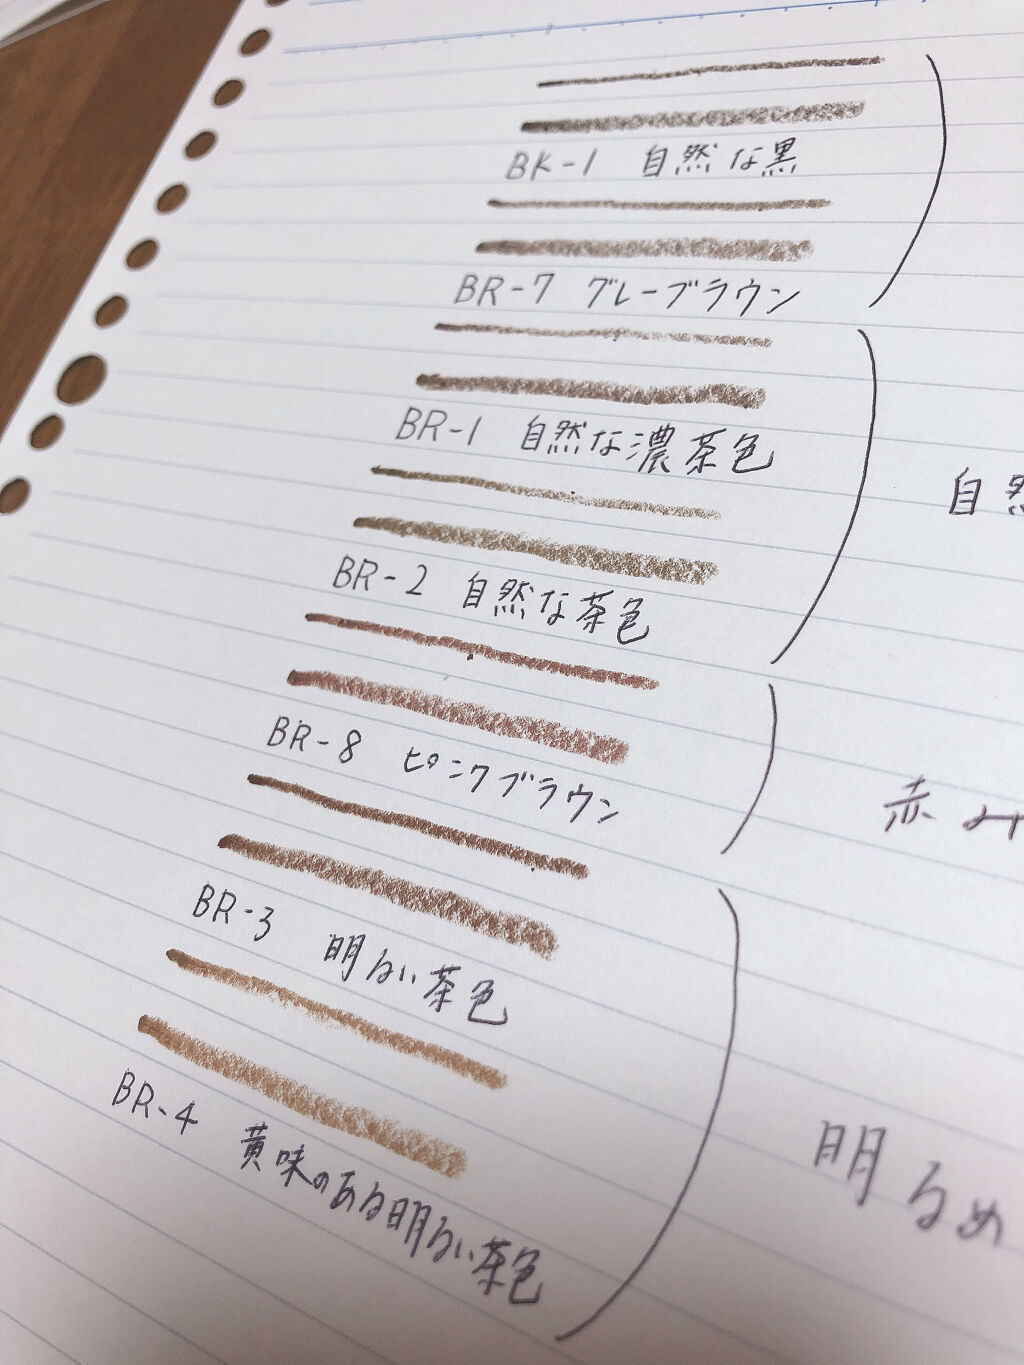 BK-1 自然な黒
BR-7 グレーブラウン
BR-1 自然な濃茶色
BR-2 自然な茶色
自然
BR-8 ピンクブラウン
赤み
BR-3 明るい茶色
BR-4 黄味のある明るい茶色
明るめ